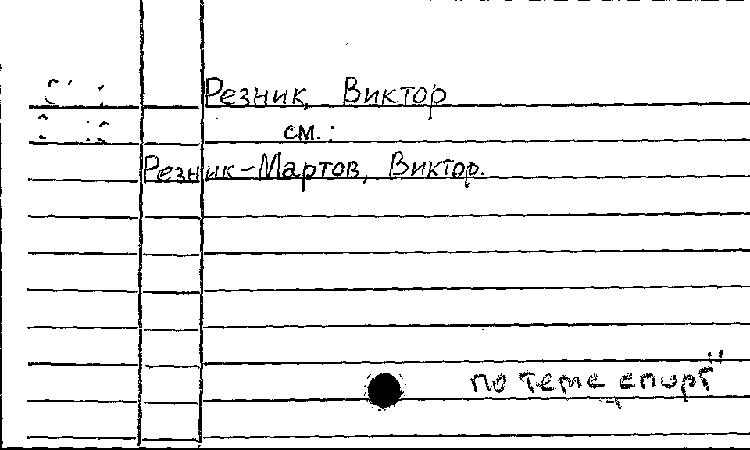 Резник, Виктор
см.:
Резник-Мартов, Виктор.
по теме „спорт"